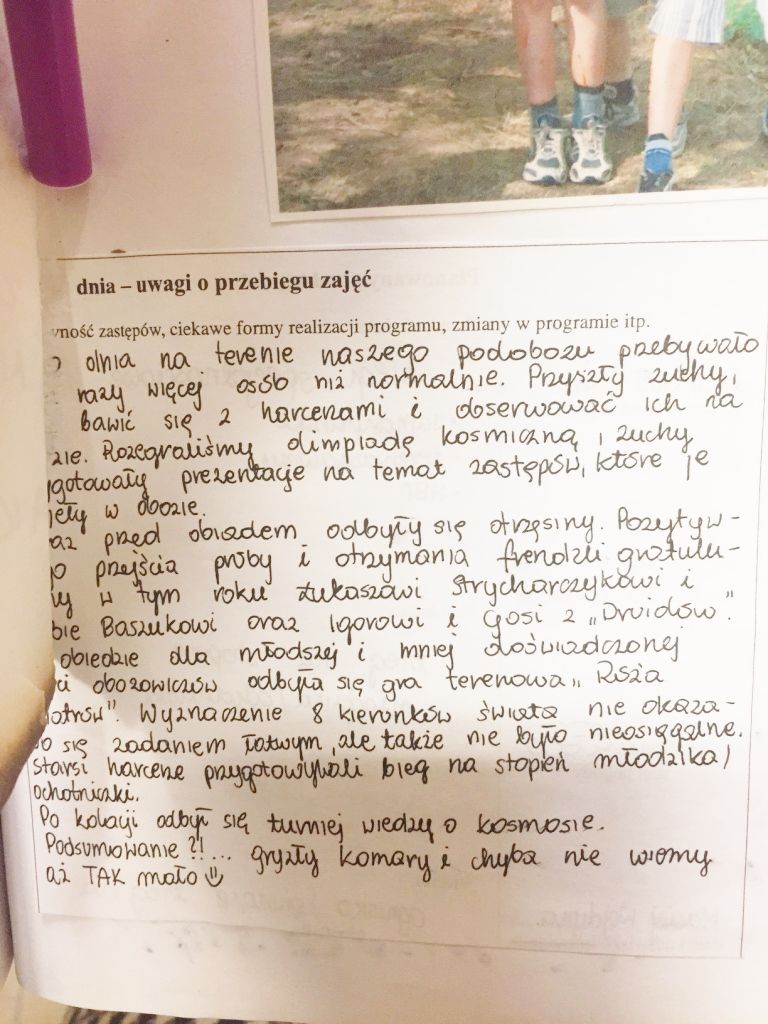 dnia – uwagi o przebiegu zajęć
wność zastępów, ciekawe formy realizacji programu, zmiany w programie itp.
dnia na terenie naszego podobozu przebywało
razy więcej osób niż normalnie. Przyszły zuchy,
bawić się z harcerzami i obserwować ich na
zie. Rozegraliśmy olimpiadę kosmiczną i zuchy
gotowały prezentacje na temat zastępów, które je
jęły w obozie.
az przed obiadem odbyły się otrzęsiny. Pozytyw-
o przejścia próby i otrzymania frendzli gratulu-
y w tym roku Łukaszowi Strycharczykowi i
bie Baszukowi oraz Igorowi i Gosi z „Druidów".
obiedzie dla młodszej i mniej doświadczonej
ci obozowiczów odbyła się gra terenowa „Róża
iatrów". Wyznaczenie 8 kierunków świata nie okaza-
o się zadaniem łatwym, ale także nie było nieosiągalne.
Starsi harcerze przygotowywali bieg na stopień młodzika/
ochotniczki.
Po kolacji odbył się turniej wiedzy o kosmosie.
Podsumowanie?!... gryzły komary i chyba nie wiemy
aż TAK mało